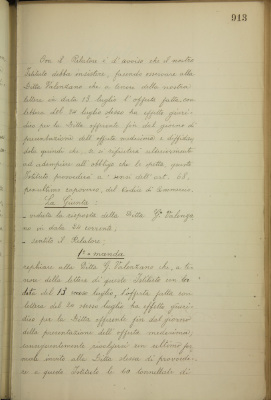 913
Ora il Relatore è d'avviso che il nostro
Istituto debba insistere, facendo conoscere alla
Ditta Valentiano che a tenore della nostra
lettera in data 13 luglio l'offerta fatta con
lettera del 20 luglio stesso ha effetto giuri-
dico per la Ditta offerente fin dal giorno di
presentazione dell'offerta medesima e diffidan-
dola quindi che, se si rifiuterà ulteriormente
ad adempiere all'obbligo che le spetta, questo
Istituto provvederà a' sensi dell'art. 68,
penultimo capoverso, del Codice di Commercio.
La Giunta:
- veduta la risposta della Ditta G. Valentia-
no in data 26 corrente;
- sentito il Relatore;
1° = manda
replicare alla Ditta G. Valentiano che, a te-
nore della lettera di questo Istituto con da-
data del 13 corso luglio, l'offerta fatta con
lettera del 20 corso luglio ha effetto giuri-
dico per la Ditta offerente fin dal giorno
della presentazione dell'offerta medesima;
conseguentemente rivolgersi un ultimo for-
male invito alla Ditta stessa di provvede-
re a questo Istituto le 60 tonnellate di